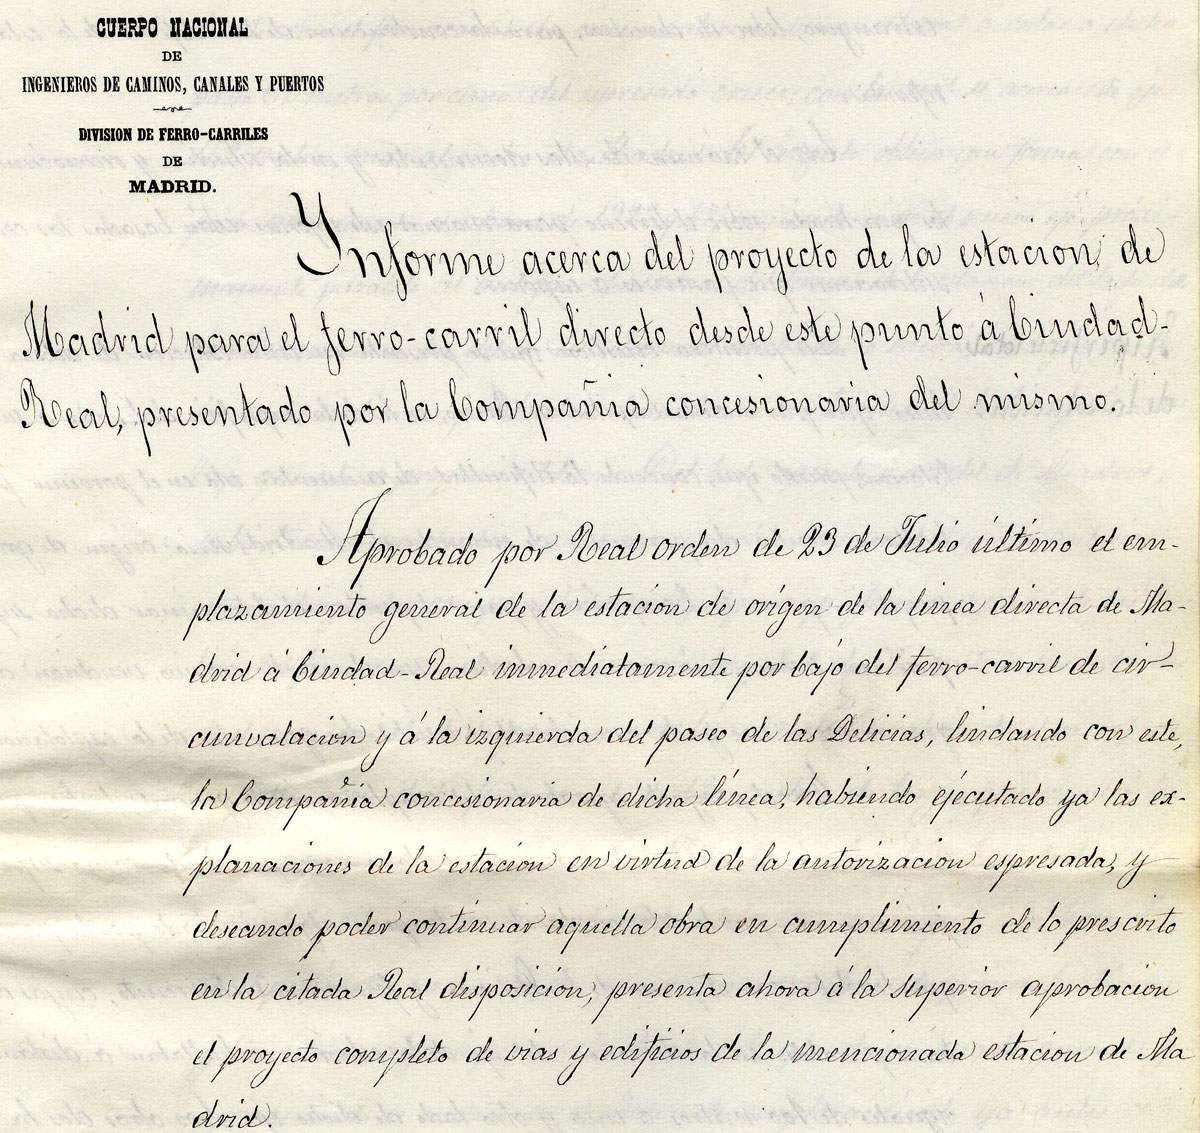 CUERPO NACIONAL
DE
INGENIEROS DE CAMINOS, CANALES Y PUERTOS
DIVISION DE FERRO-CARRILES
DE
MADRID.
Informe acerca del proyecto de la estacion de
Madrid para el ferro-carril directo desde este punto á Ciudad-
Real, presentado por la Compañia concesionaria del mismo.
Aprobado por Real orden de 23 de Julio último el em-
plazamiento general de la estacion de origen de la linea directa de Ma-
drid á Ciudad-Real inmediatamente por bajo del ferro-carril de cir-
cunvalacion y á la izquierda del paseo de las Delicias, lindando con este,
la Compañia concesionaria de dicha línea, habiendo ejecutado ya las ex-
planaciones de la estacion en virtud de la autorizacion espresada, y
deseando poder continuar aquella obra en cumplimiento de lo prescrito
en la citada Real disposicion, presenta ahora á la superior aprobacion
el proyecto completo de vias y edificios de la mencionada estacion de Ma
drid.